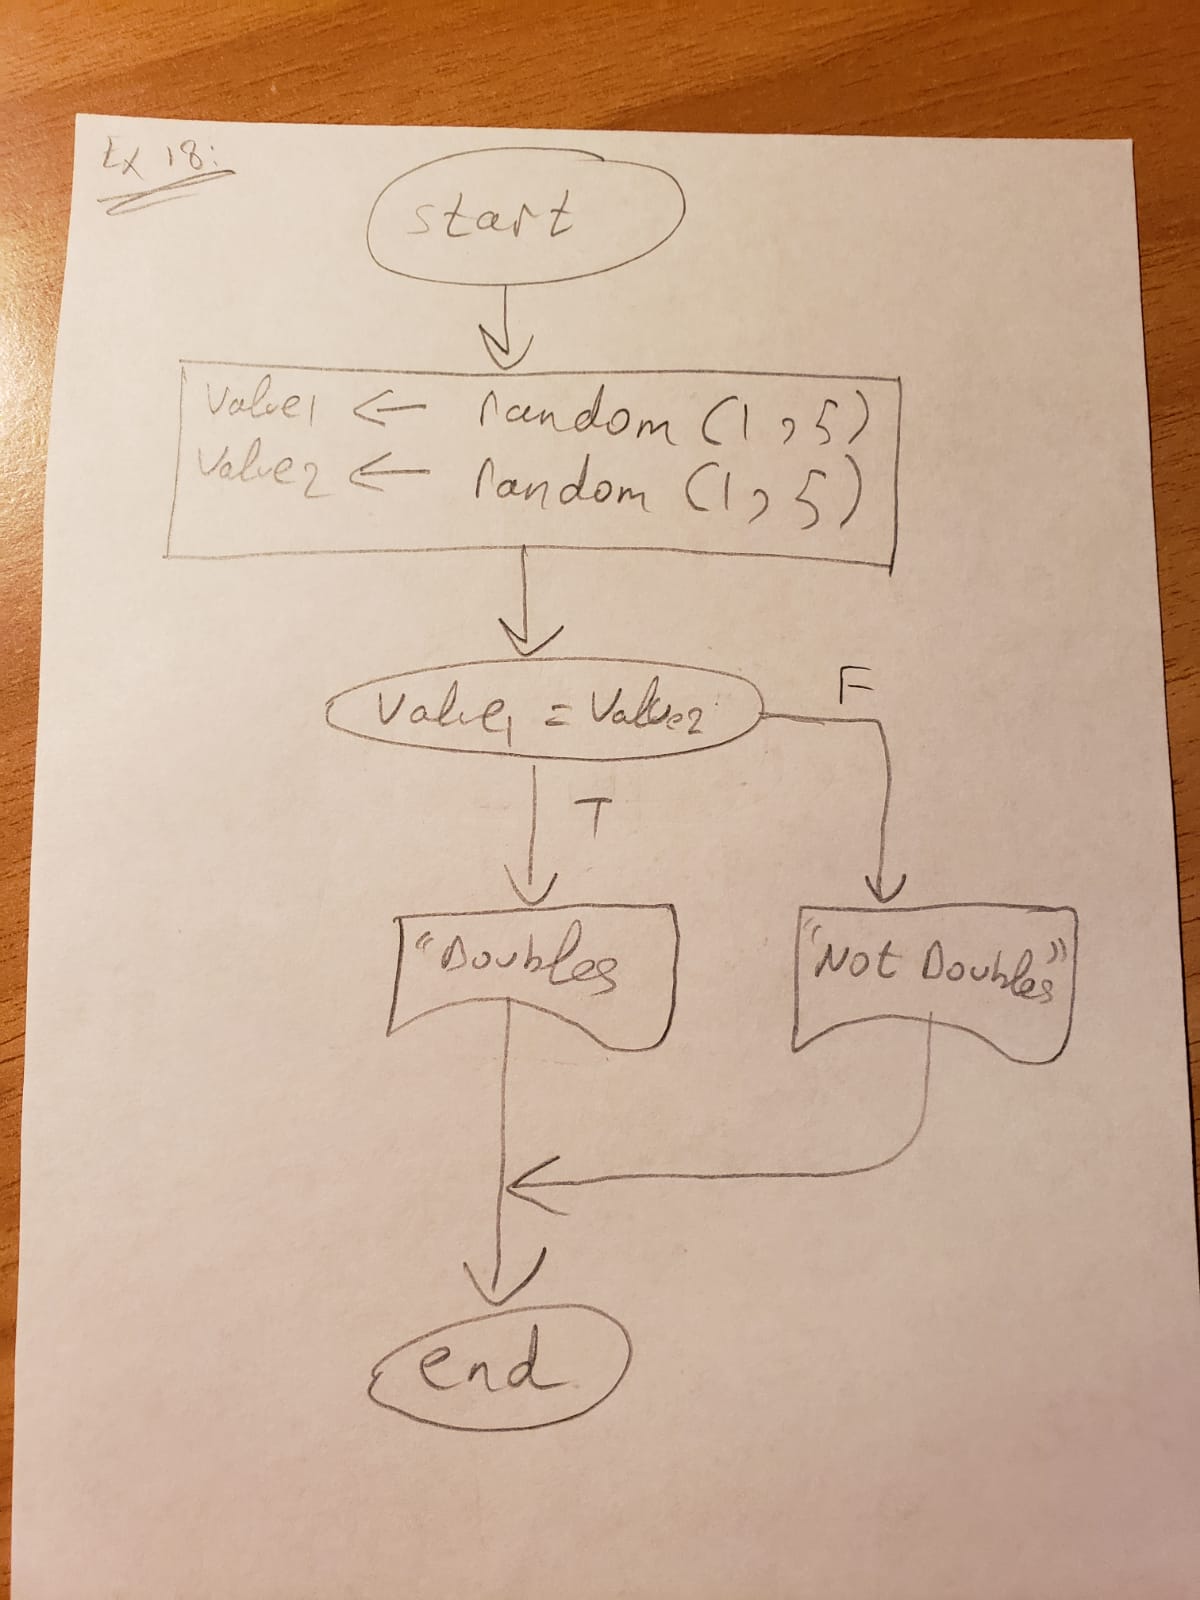 Ex 18:
start
Value1 ← random (1,5)
Value2 ← random (1,5)
Value1 = Value2
F
T
"Doubles
"Not Doubles"
end